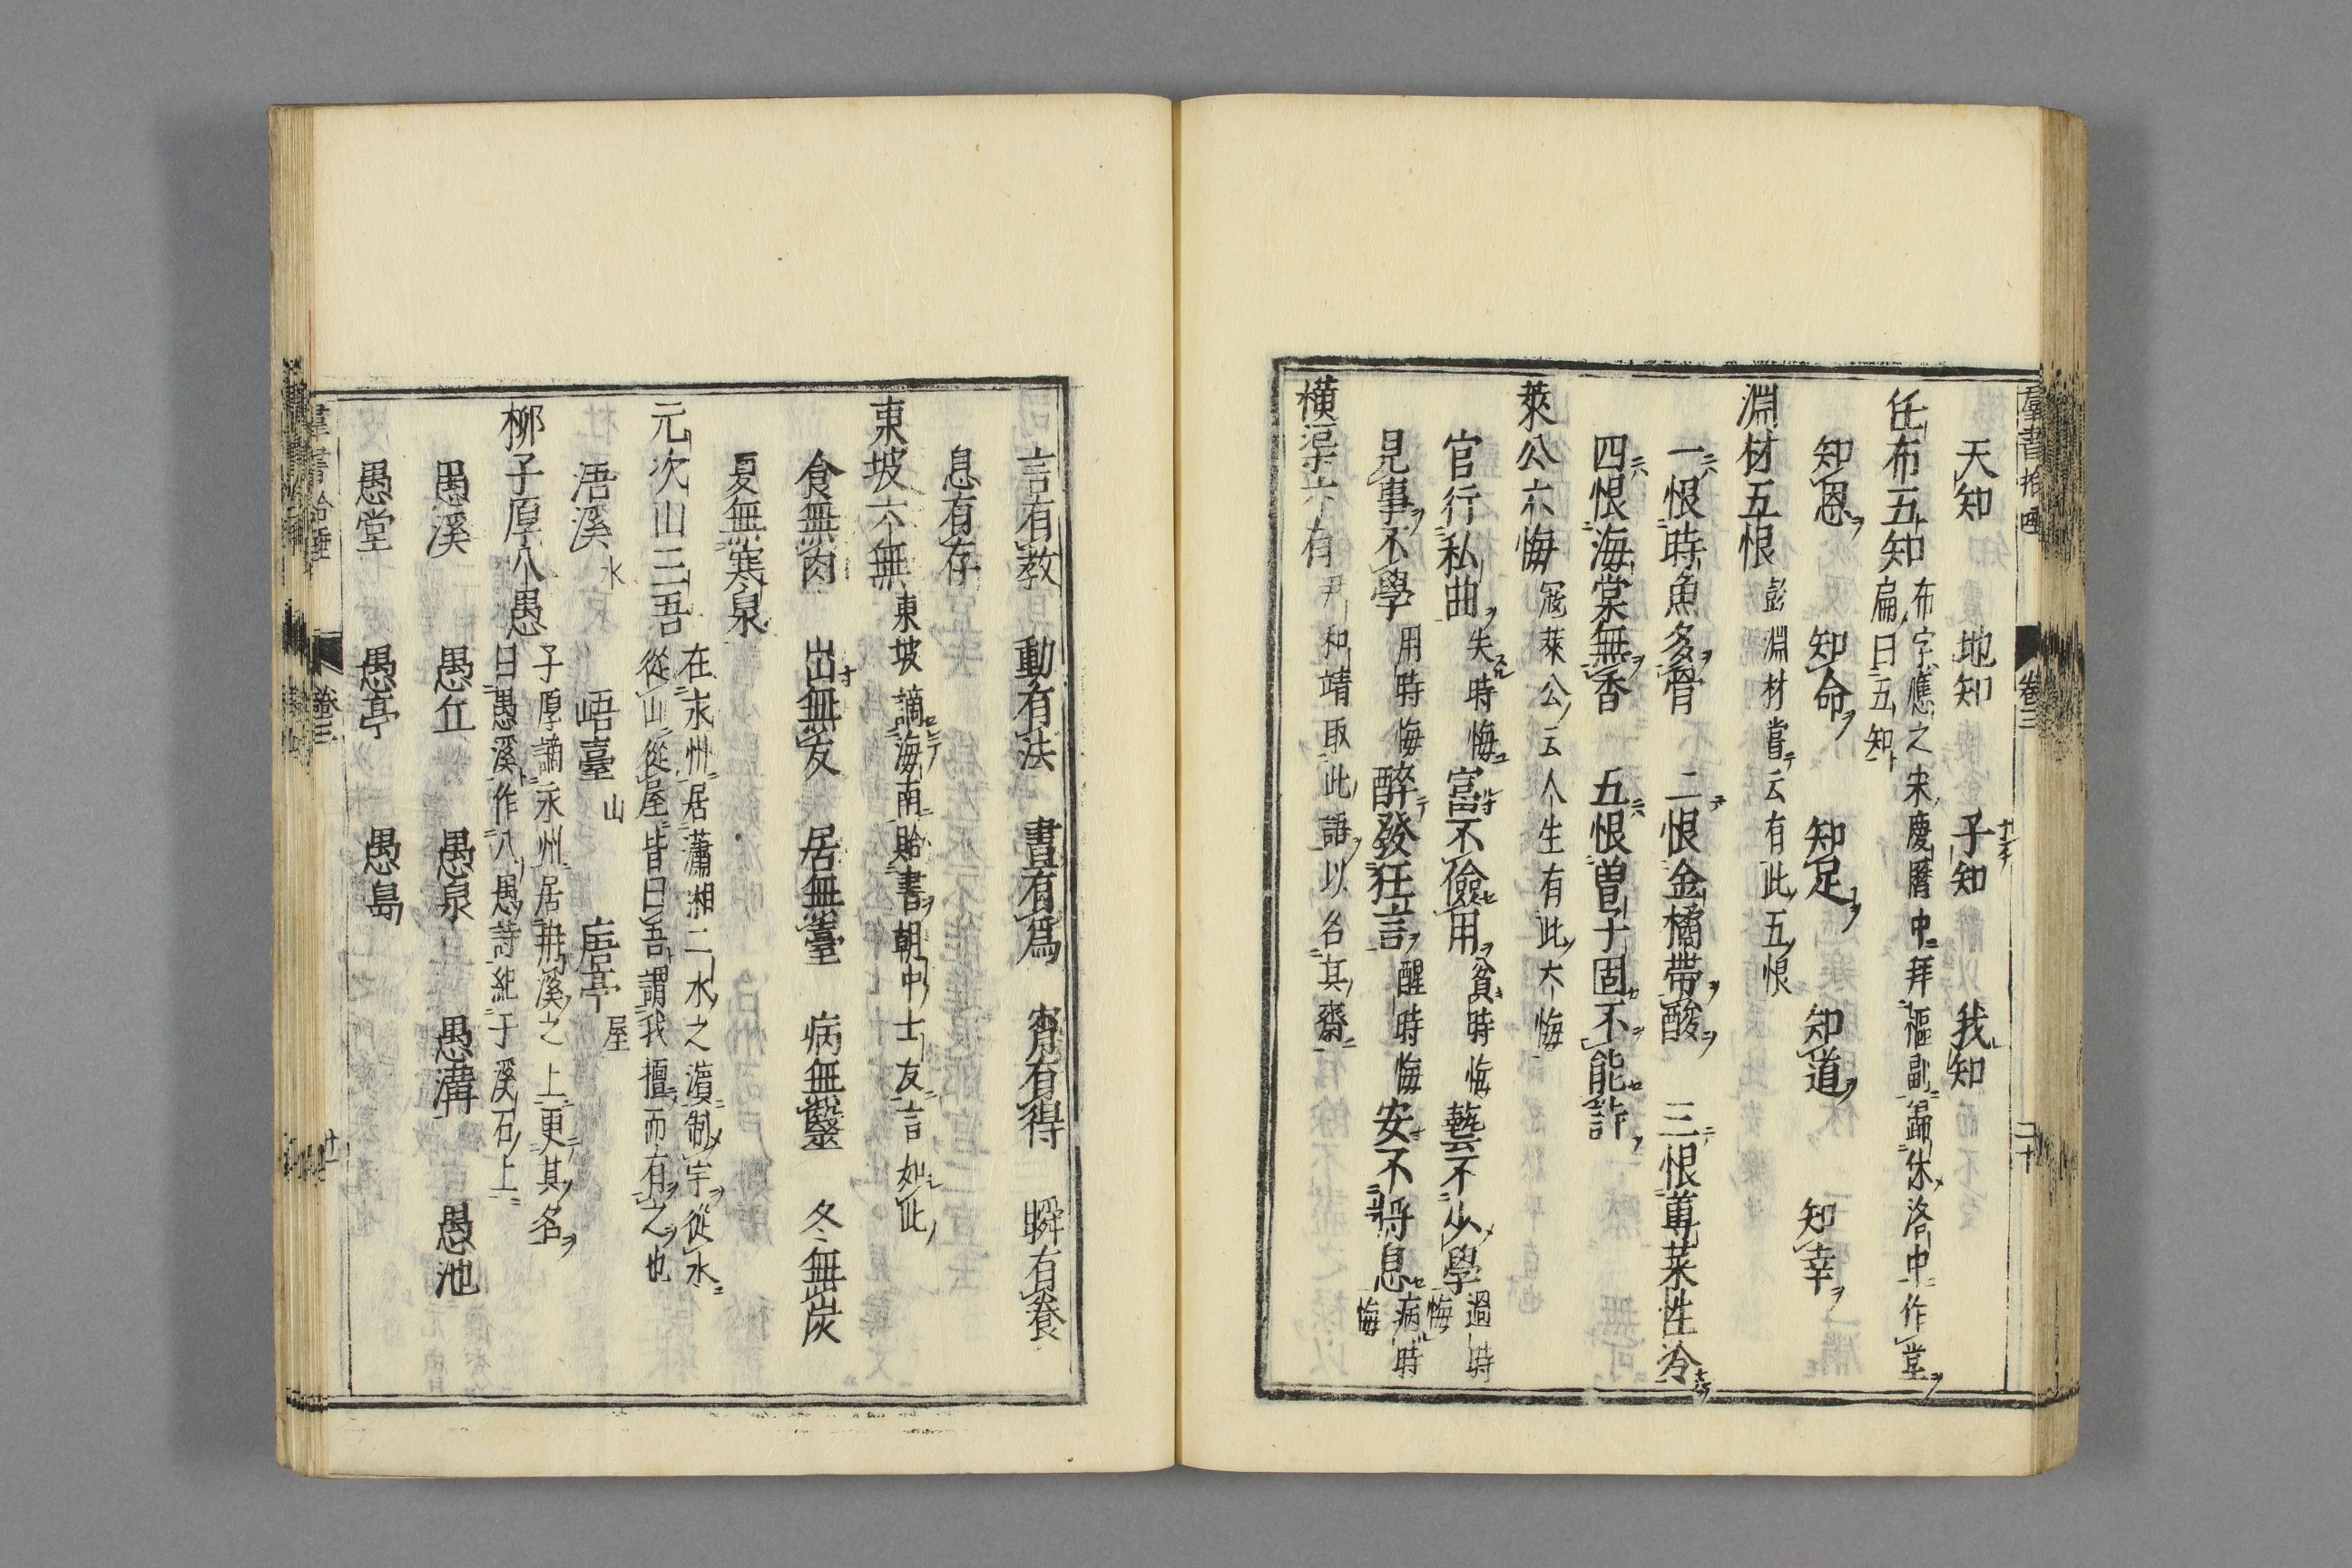 天知　地知　子知　我知
任布五知　布字應之宋慶曆中拜樞副歸休洛中作堂
扁曰五知
知恩　知命　知足　知道　知幸
淵材五恨　彭淵材嘗云有此五恨
一恨時魚多骨　二恨金橘帶酸　三恨蓴菜性冷
四恨海棠無香　五恨曽子固不能詩
萊公六悔　冦萊公云人生有此六悔
官行私曲　失時悔　富不儉用　貧時悔　藝不少學　過時悔
見事不學　用時悔　醉發狂言　醒時悔　安不將息　病時悔
橫渠六有　尹和靖取此語以名其齋
卷三
二十
言有教　動有法　晝有爲　宵有得　瞬有養
息有存
東坡六無　東坡謫海南貽書朝中士友言如此
食無肉　出無友　居無臺　病無醫　冬無炭
夏無寒泉
元次山三吾　在永州居瀟湘二水之濵制字從水
從山從屋皆曰吾謂我擅而有之也
浯溪　水　峿臺　山　㾇亭　屋
柳子厚八愚　子厚謫永州居冉溪之上更其名
曰愚溪作八愚詩紀于溪石上
愚溪　愚丘　愚泉　愚溝　愚池
愚堂　愚亭　愚島
卷三